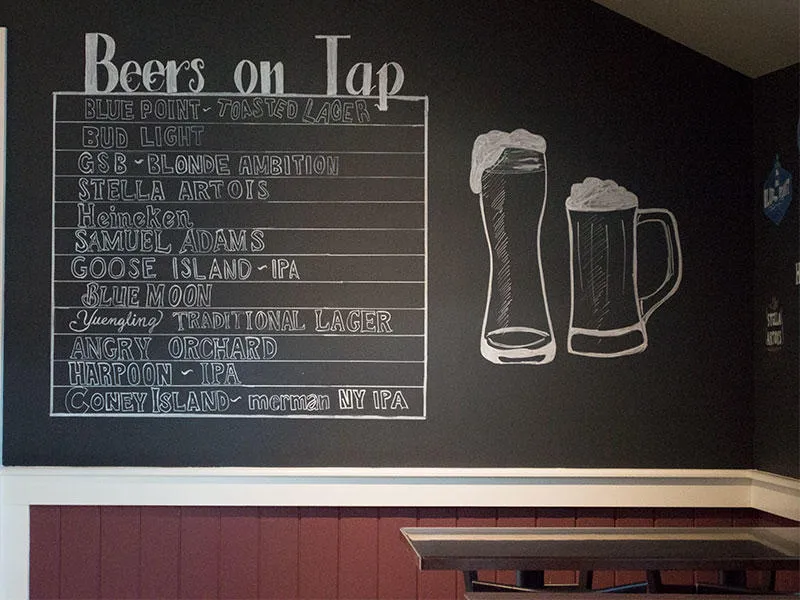 Beers on Tap
BLUE POINT ~ TOASTED LAGER ~
BUD LIGHT
GSB ~ BLONDE AMBITION
STELLA ARTOIS
Heineken
SAMUEL ADAMS
GOOSE ISLAND ~ IPA
BLUE MOON
Yuengling TRADITIONAL LAGER
ANGRY ORCHARD
HARPOON ~ IPA
CONEY ISLAND ~ merman NY IPA
STELLA
ARTOIS